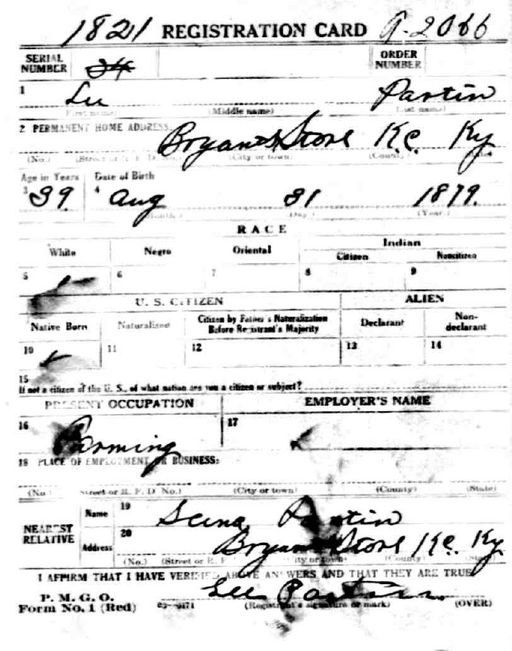 1821 REGISTRATION CARD A-2066
SERIAL NUMBER 34 ORDER NUMBER
1 Lee Partin
(First name) (Middle name) (Last name)
2 PERMANENT HOME ADDRESS: Bryants Store K.C. Ky
(No.) (Street or R. F. D. No.) (City or town) (County) (State)
Age in Years Date of Birth
3 39 4 Aug 31 1879.
(Month.) (Day.) (Year.)
RACE
White Negro Oriental Indian
Citizen Noncitizen
5 6 7 8 9
U. S. CITIZEN ALIEN
Native Born Naturalized Citizen by Father's Naturalization Before Registrant's Majority Declarant Non-declarant
10 11 12 13 14
15
If not a citizen of the U. S., of what nation are you a citizen or subject?
PRESENT OCCUPATION EMPLOYER'S NAME
16 Farming 17
18 PLACE OF EMPLOYMENT OR BUSINESS:
(No.) (Street or R. F. D. No.) (City or town) (County) (State)
NEAREST RELATIVE
Name 19 Partin
Address 20 Bryants Store K.C. Ky
(No.) (Street or R. F. (City or town) (County) (State)
I AFFIRM THAT I HAVE VERIFIED ABOVE ANSWERS AND THAT THEY ARE TRUE
P. M. G. O.
Form No. 1 (Red) Lee Partin
(Registrant's signature or mark) (OVER)